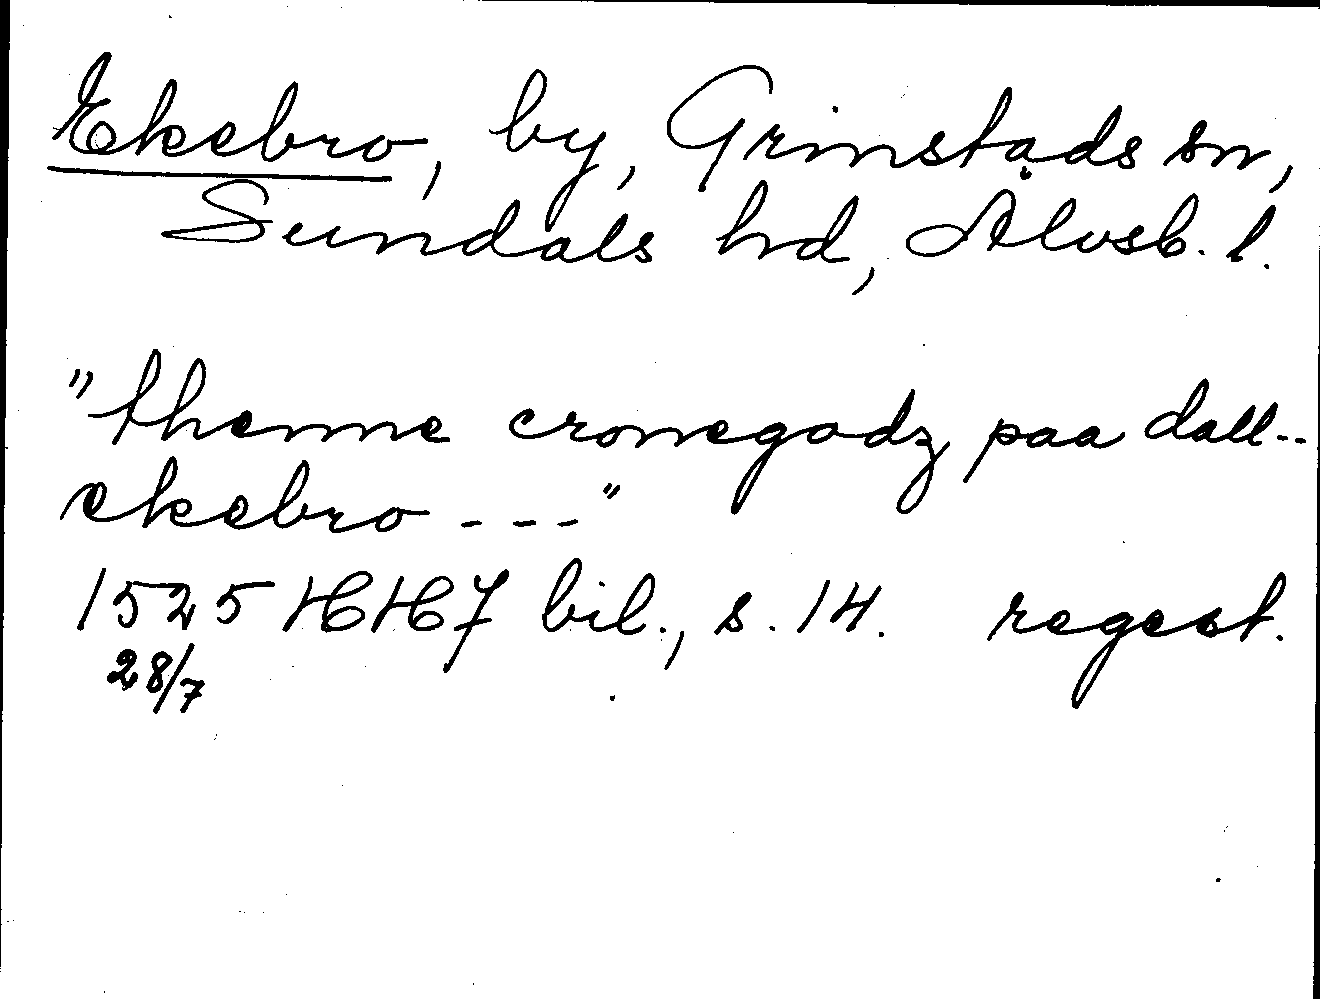 Ekebro, by, Grinstads sn,
Sundals hd, Älvsb. l.
"thenne cronegodz paa dall--
ekebro - - -"
1525 HH 7 bil., s. 14. regest.
28/7